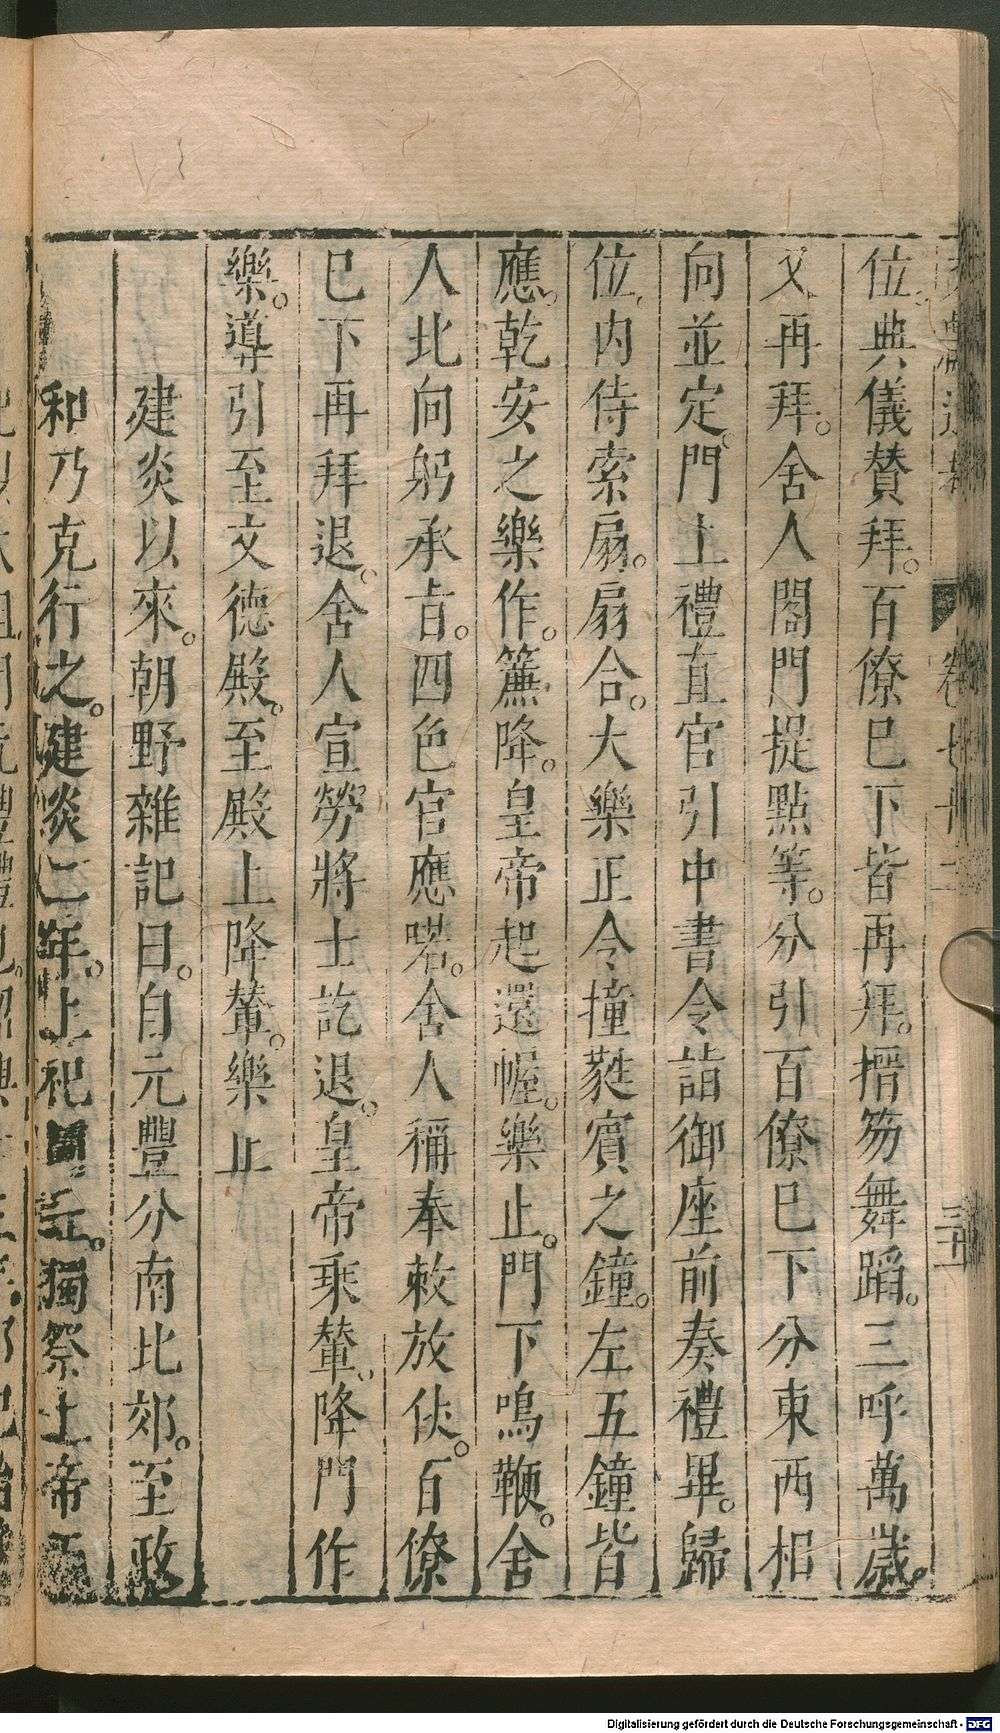 位。典儀賛拜。百僚已下皆再拜。搢笏舞蹈。三呼萬歲。
又再拜。舍人閤門提點等。分引百僚已下分東西相
向並定。門上禮直官引中書令詣御座前奏禮畢。歸
位。内侍索扇。扇合。大樂正令撞蕤賓之鐘。左五鐘皆
應。乾安之樂作。簾降。皇帝起還幄。樂止。門下鳴鞭。舍
人北向躬承旨。四色官應喏。舍人稱奉敕放仗。百僚
已下再拜退。舍人宣勞將士訖退。皇帝乘輦。降門作
樂。導引至文德殿。至殿上降輦。樂止
建炎以來。朝野雜記曰。自元豐分南北郊。至政
和乃克行之。建炎二年。上祀圜丘。獨祭上帝而
Digitalisierung gefördert durch die Deutsche Forschungsgemeinschaft - DFG